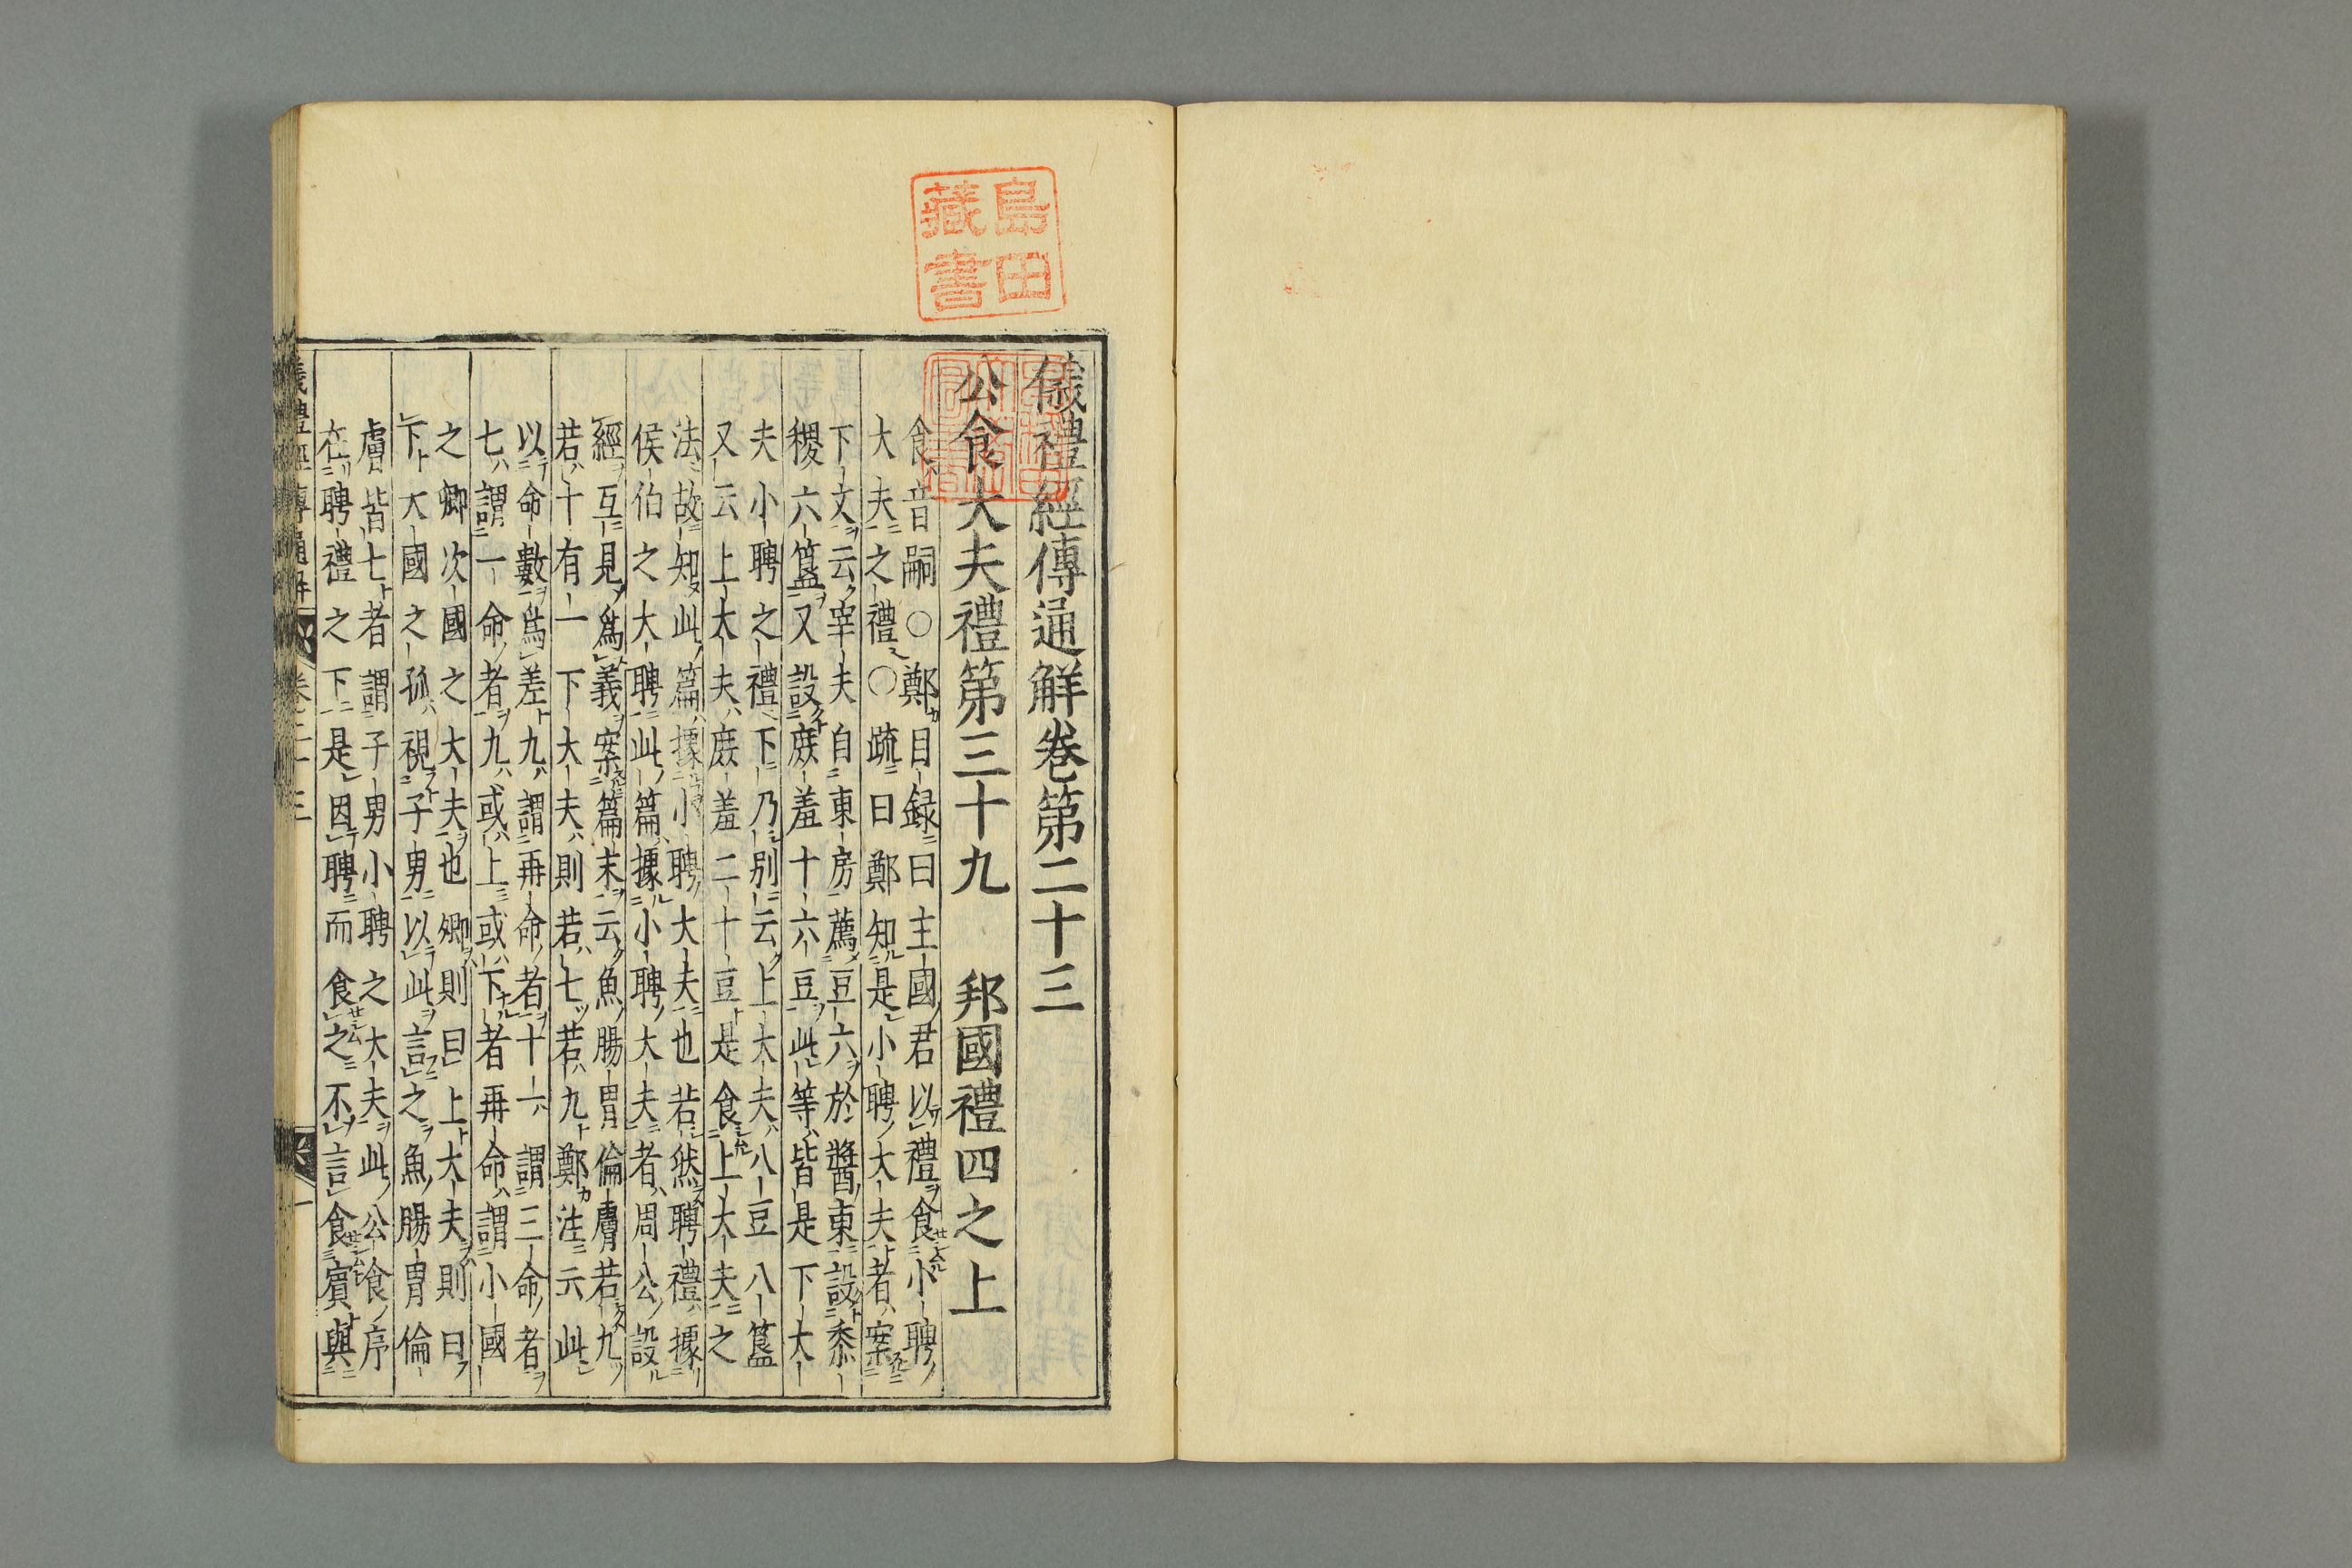 島田
藏書
儀禮經傳通觧卷第二十三
公食大夫禮第三十九　邦國禮四之上
食音嗣○鄭目録曰主國君以禮食小聘
大夫之禮○疏曰鄭知是小聘大夫者案
下文云宰夫自東房薦豆六於醬東設黍
稷六簋又設庶羞十六豆此等皆是下大
夫小聘之禮下乃别云上大夫八豆八簋
又云上大夫庶羞二十豆是食上大夫之
法故知此篇據小聘大夫也若然聘禮據
侯伯之大聘此篇據小聘大夫者周公設
經互見爲義案篇末云魚腸胃倫膚若九
若十有一下大夫則若七若九鄭注云此
以命數爲差九謂再命者十一謂三命者
七謂一命者九或上或下者再命謂小國
之卿次國之大夫也卿則曰上大夫則曰
下大國之孤視子男以此言之魚腸胃倫
膚皆七者謂子男小聘之大夫此公食序
在聘禮之下是因聘而食之不言食賓與
儀禮經傳通解　卷二十三　一